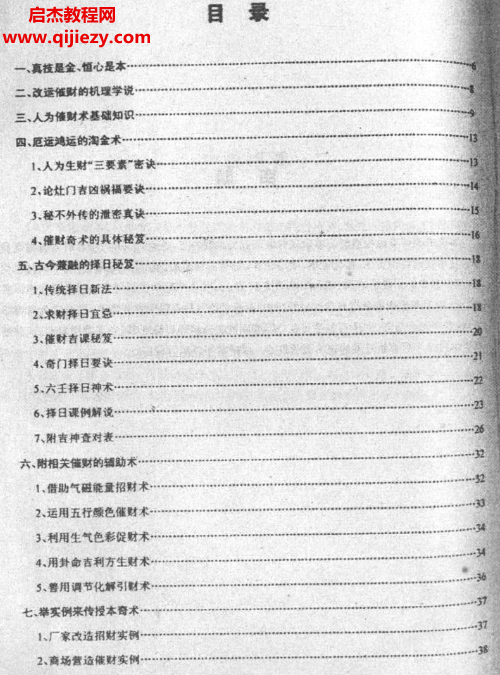 启杰教程网
www.qijiezy.com
目 录
一、真技是金、恒心是本 6
二、改运催财的机理学说 8
三、人为催财术基础知识 9
四、厄运鸿运的淘金术 13
1、人为生财“三要素”密诀 13
2、论灶门吉凶祸福要诀 14
3、秘不外传的泄密真诀 15
4、催财奇术的具体秘笈 16
五、古今兼融的择日秘笈 18
1、传统择日新法 18
2、求财择日宜忌 18
3、催财吉课秘笈 20
4、奇门择日要诀 21
5、六壬择日神术 22
6、择日课例解说 23
7、附吉神查对表 26
六、附相关催财的辅助术 32
1、借助气磁能量招财术 32
2、运用五行颜色催财术 33
3、利用生气色彩促财术 34
4、用卦命吉利方生财术 34
5、善用调节化解引财术 36
七、举实例来传授本奇术 37
1、厂家改造招财实例 37
2、商场营造催财实例 38